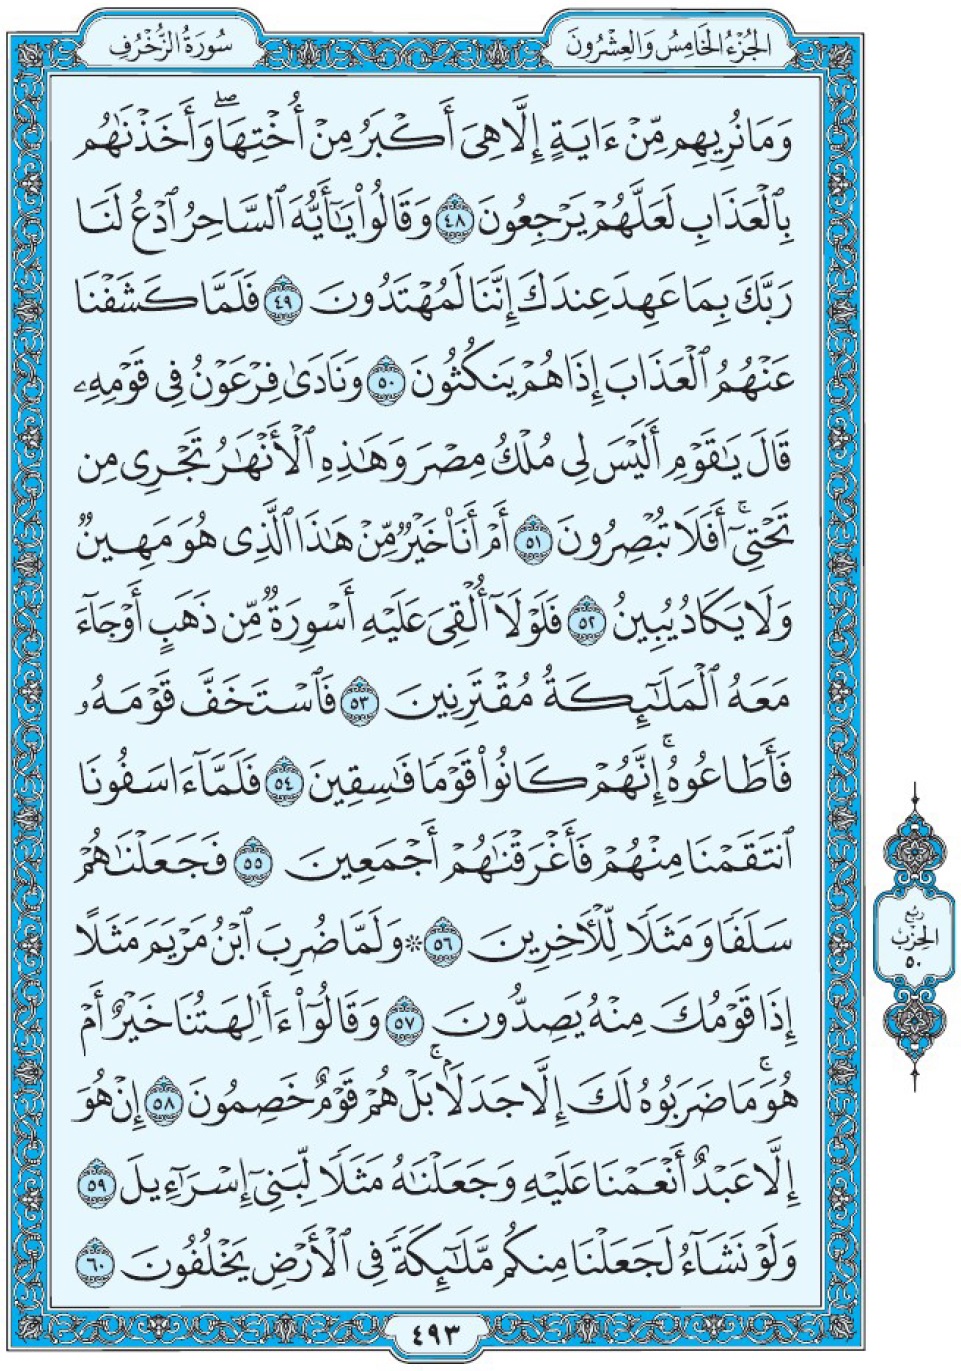 سُورَةُ الزُّخْرُفِ
الجُزْءُ الخَامِسُ وَالعِشْرُونَ
وَمَا نُرِيهِم مِّنْ ءَايَةٍ إِلَّا هِىَ أَكْبَرُ مِنْ أُخْتِهَا ۖ وَأَخَذْنَٰهُم
بِٱلْعَذَابِ لَعَلَّهُمْ يَرْجِعُونَ ٤٨ وَقَالُوا۟ يَٰٓأَيُّهَ ٱلسَّاحِرُ ٱدْعُ لَنَا
رَبَّكَ بِمَا عَهِدَ عِندَكَ إِنَّنَا لَمُهْتَدُونَ ٤٩ فَلَمَّا كَشَفْنَا
عَنْهُمُ ٱلْعَذَابَ إِذَا هُمْ يَنكُثُونَ ٥٠ وَنَادَىٰ فِرْعَوْنُ فِى قَوْمِهِۦ
قَالَ يَٰقَوْمِ أَلَيْسَ لِى مُلْكُ مِصْرَ وَهَٰذِهِ ٱلْأَنْهَٰرُ تَجْرِى مِن
تَحْتِىٓ ۚ أَفَلَا تُبْصِرُونَ ٥١ أَمْ أَنَا۠ خَيْرٌ مِّنْ هَٰذَا ٱلَّذِى هُوَ مَهِينٌ
وَلَا يَكَادُ يُبِينُ ٥٢ فَلَوْلَآ أُلْقِىَ عَلَيْهِ أَسْوِرَةٌ مِّن ذَهَبٍ أَوْ جَآءَ
مَعَهُ ٱلْمَلَٰٓئِكَةُ مُقْتَرِنِينَ ٥٣ فَٱسْتَخَفَّ قَوْمَهُۥ
فَأَطَاعُوهُ ۚ إِنَّهُمْ كَانُوا۟ قَوْمًا فَٰسِقِينَ ٥٤ فَلَمَّآ ءَاسَفُونَا
ٱنتَقَمْنَا مِنْهُمْ فَأَغْرَقْنَٰهُمْ أَجْمَعِينَ ٥٥ فَجَعَلْنَٰهُمْ
سَلَفًا وَمَثَلًا لِّلْءَاخِرِينَ ٥٦ ۞ وَلَمَّا ضُرِبَ ٱبْنُ مَرْيَمَ مَثَلًا
إِذَا قَوْمُكَ مِنْهُ يَصِدُّونَ ٥٧ وَقَالُوٓا۟ ءَأَٰلِهَتُنَا خَيْرٌ أَمْ
هُوَ ۚ مَا ضَرَبُوهُ لَكَ إِلَّا جَدَلًۢا ۚ بَلْ هُمْ قَوْمٌ خَصِمُونَ ٥٨ إِنْ هُوَ
إِلَّا عَبْدٌ أَنْعَمْنَا عَلَيْهِ وَجَعَلْنَٰهُ مَثَلًا لِّبَنِىٓ إِسْرَٰٓءِيلَ ٥٩
وَلَوْ نَشَآءُ لَجَعَلْنَا مِنكُم مَّلَٰٓئِكَةً فِى ٱلْأَرْضِ يَخْلُفُونَ ٦٠
رُبُع
الحِزْب
٥٠
٤٩٣